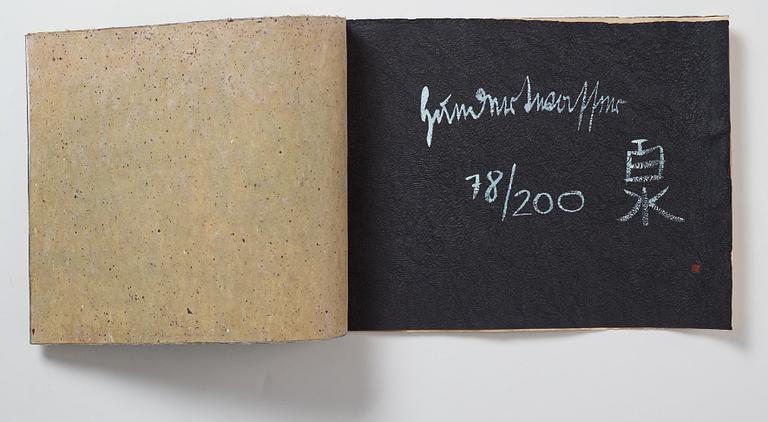 Hundertwasser
78/200
百水